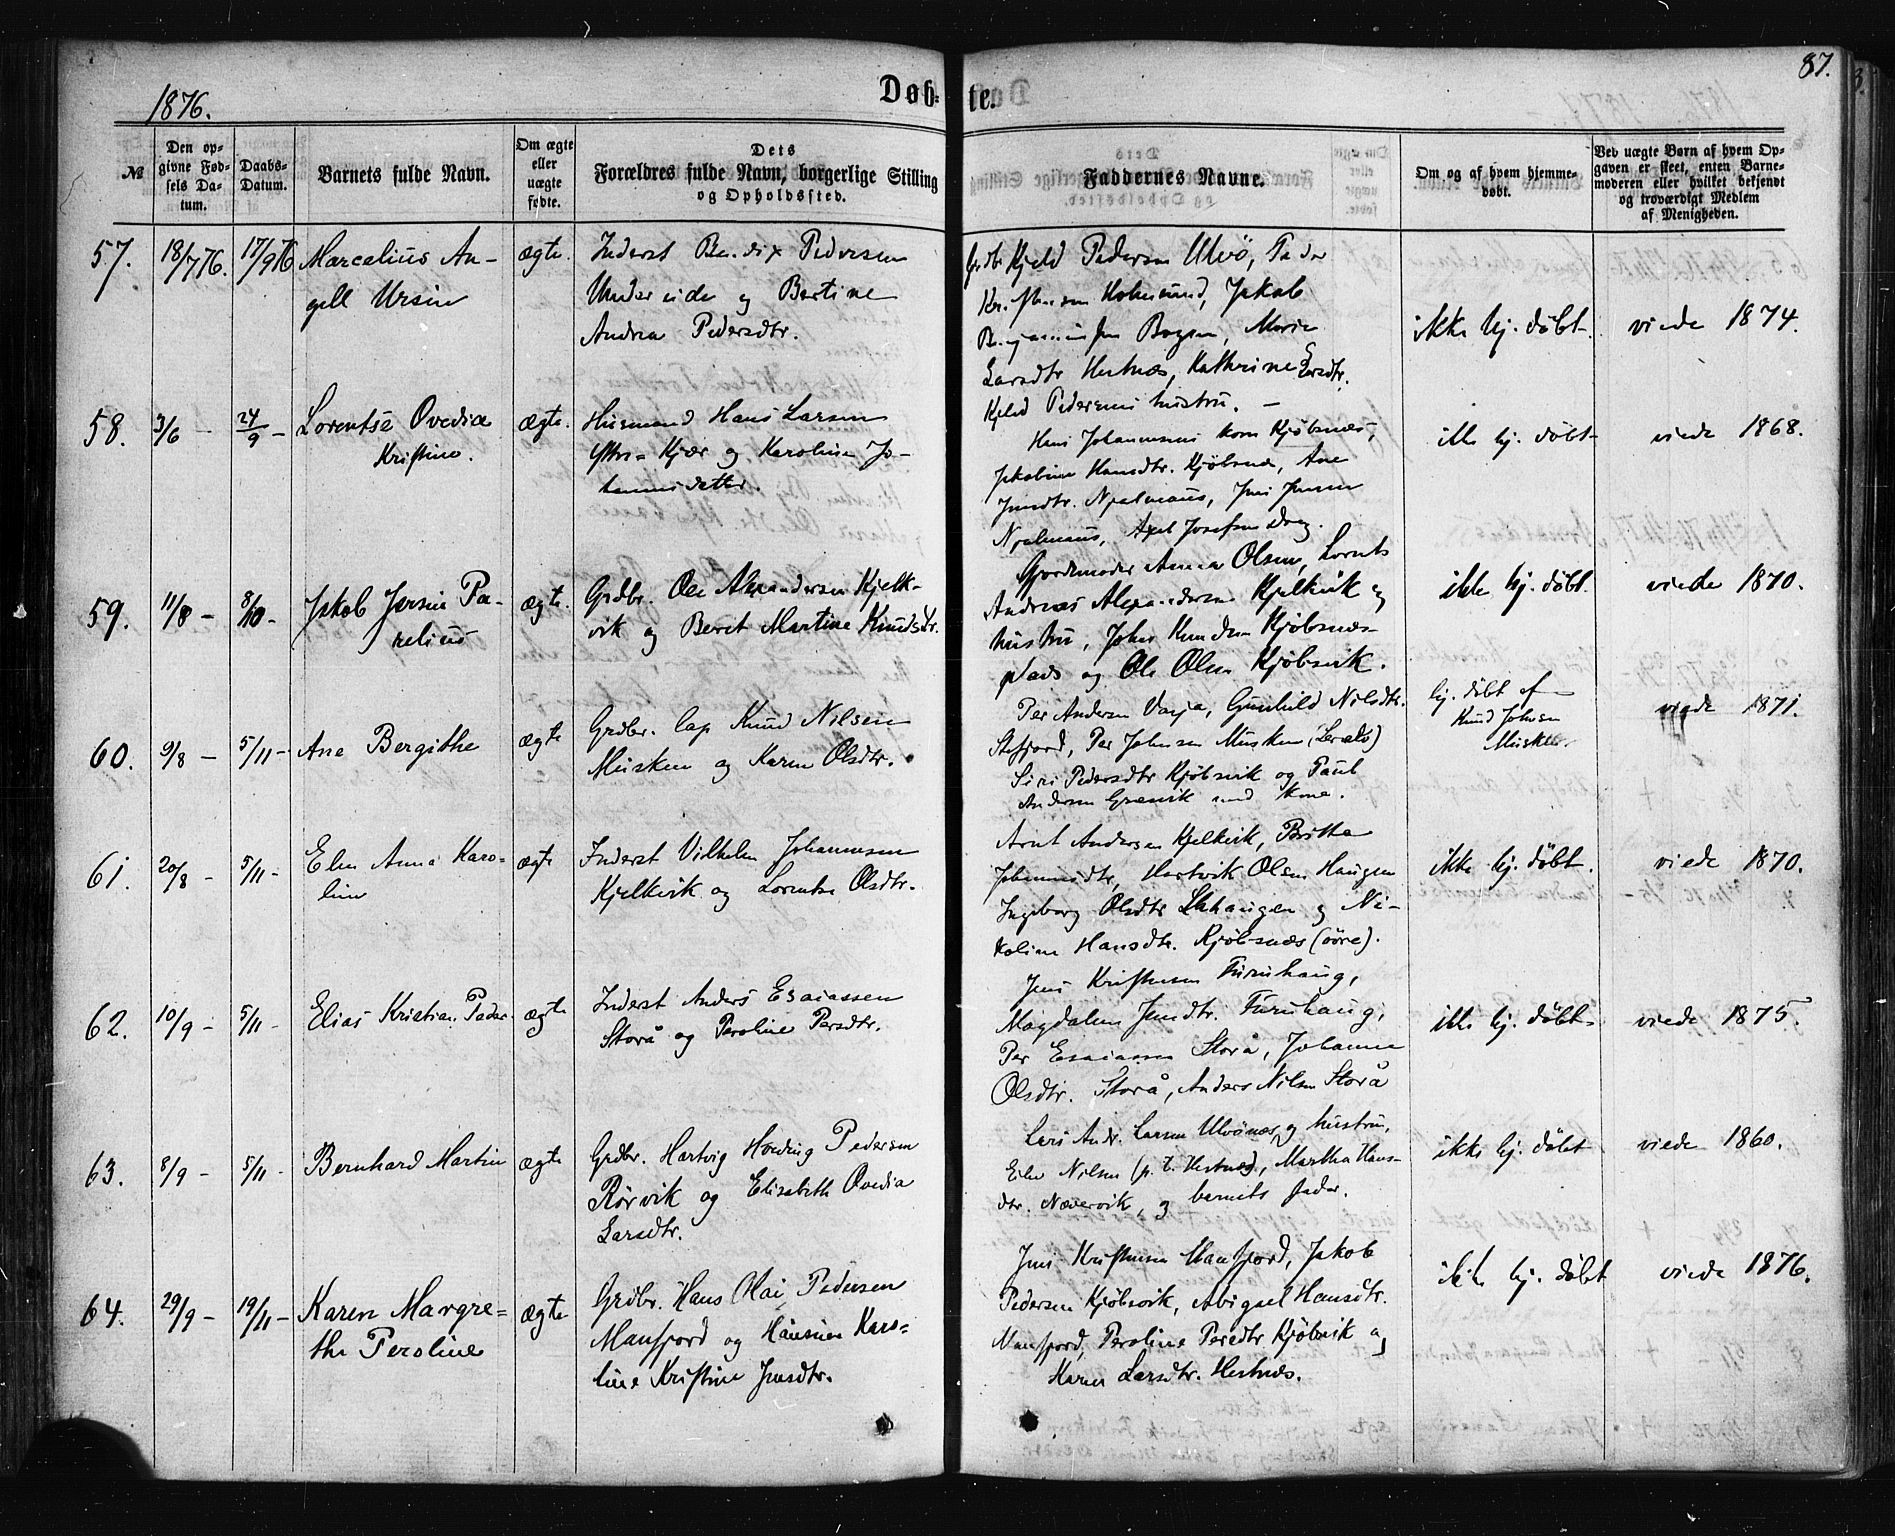 1876.
Døb-
te.
87.
№
Den op-
givne Fød-
sels Da-
tum.
Daabs-
Datum.
Barnets fulde Navn.
Om ægte
eller
uægte
fødte.
Dets
Forældres fulde Navn, borgerlige Stilling
og Opholdssted.
Faddernes Navne.
Om og af hvem hjemme-
døbt.
Ved uægte Børn af hvem Op-
gaven er skeet, enten Barne-
moderen eller hvilket bekjendt
og troværdigt Medlem
af Menigheden.
57.
18/7 76.
17/9 76
Marcelius An-
gell Ursin
ægte.
Inderst Bendix Pedersen
Undereide og Bertine
Andrea Pedersdtr.
Grdbr. Kjeld Pedersen Ulvø, Peder
Kristensen Holmsund, Jakob
Benjaminsen Bogen, Marie
Larsdtr Hestnæs, Kathrine Larsdtr.
Kjeld Pedersens hustru. -
ikke hj. døbt.
viede 1874.
58.
3/6 -
24/9 -
Lorentse Ovedia
Kristine.
ægte.
Husmand Hans Larsen
Kjær og Karoline Jo-
hannisdatter.
Hans Johannesens kone Kjøbsnæs,
Jakobine Hansdtr. Kjøbsnæs, Ane
Jensdtr. Njalmaus, Jens Jensen
Njalmaus, Axel Josefsen Drag.
ikke hj. døbt-
viede 1868.
59.
11/8 -
8/10 -
Jakob Jersin Pa-
relius
ægte.
Grdbr. Ole Alexandersen Kjelk-
vik og Beret Martine Knudsdtr.
Gjordemoder Anna Olsen, Lornts
Andreas Alexandersen Kjelkvik og
hustru, Johan Knudsen Kjøbsnæs-
plads og Ole Olsen Kjøbsvik.
ikke hj. døbt.
viede 1870.
60.
9/8 -
5/11 -
Ane Bergithe
ægte
Grdbr. lap Knud Nilsen
Musken og Karen Olsdtr.
Per Andersen Varja, Gunhild Nilsdtr.
Stefjord, Per Johnsen Musken
Siri Pedersdtr Kjøbsvik og Paul
Andersen Grænvik med kone.
hj. døbt af
Knud Johnsen
Musken.
viede 1871.
61.
20/8 -
5/11 -
Elen Anna Karo-
line
ægte
Inderst Vilhelm Johannesen
Kjelkvik og Lorentse Olsdtr.
Arnt Andersen Kjelkvik, Britha
Johannesdtr, Hartvik Olsen Haugen
Ingeborg Olsdtr og Ni-
koline Hansdtr. Kjøbsnæs (øvre).
ikke hj. døbt.
viede 1870.
62.
10/9 -
5/11 -
Elias Kristian Peder
ægte
Inderst Anders Esaiassen
Storå og Peroline Persdtr.
Jens Kristensen Furuhaug,
Magdalena Jensdtr. Furuhaug,
Per Esaiassen Storå, Johanna
Olsdtr. Storå, Anders Nilsen Storå
ikke hj. døbt-
viede 1875.
63.
8/9 -
5/11 -
Bernhard Martin
ægte
Grdbr. Hartvig Hveding Pedersen
Rørvik og Elisabeth Ovedia
Larsdtr.
Lars Andr. Larsen Ulvønæs og hustru,
Eiler Nilsen (p. t. Hestnes), Martha Hans-
dtr. Nævervik, og barnets fader.
ikke hj. døbt
viede 1860.
64.
29/9 -
19/11 -
Karen Margre-
the Peroline
ægte
Grdbr. Hans Olai Pedersen
Mansfjord og Hansine Karo-
line Kristine Jensdtr.
Jens Kristensen Mansfjord, Jakob
Pedersen Kjøbsvik, Abigael Hansdtr.
Mansfjord, Peroline Persdtr Kjøbsvik og
Karen Larsdtr. Hestnæs.
ikke hj. døbt
viede 1876.